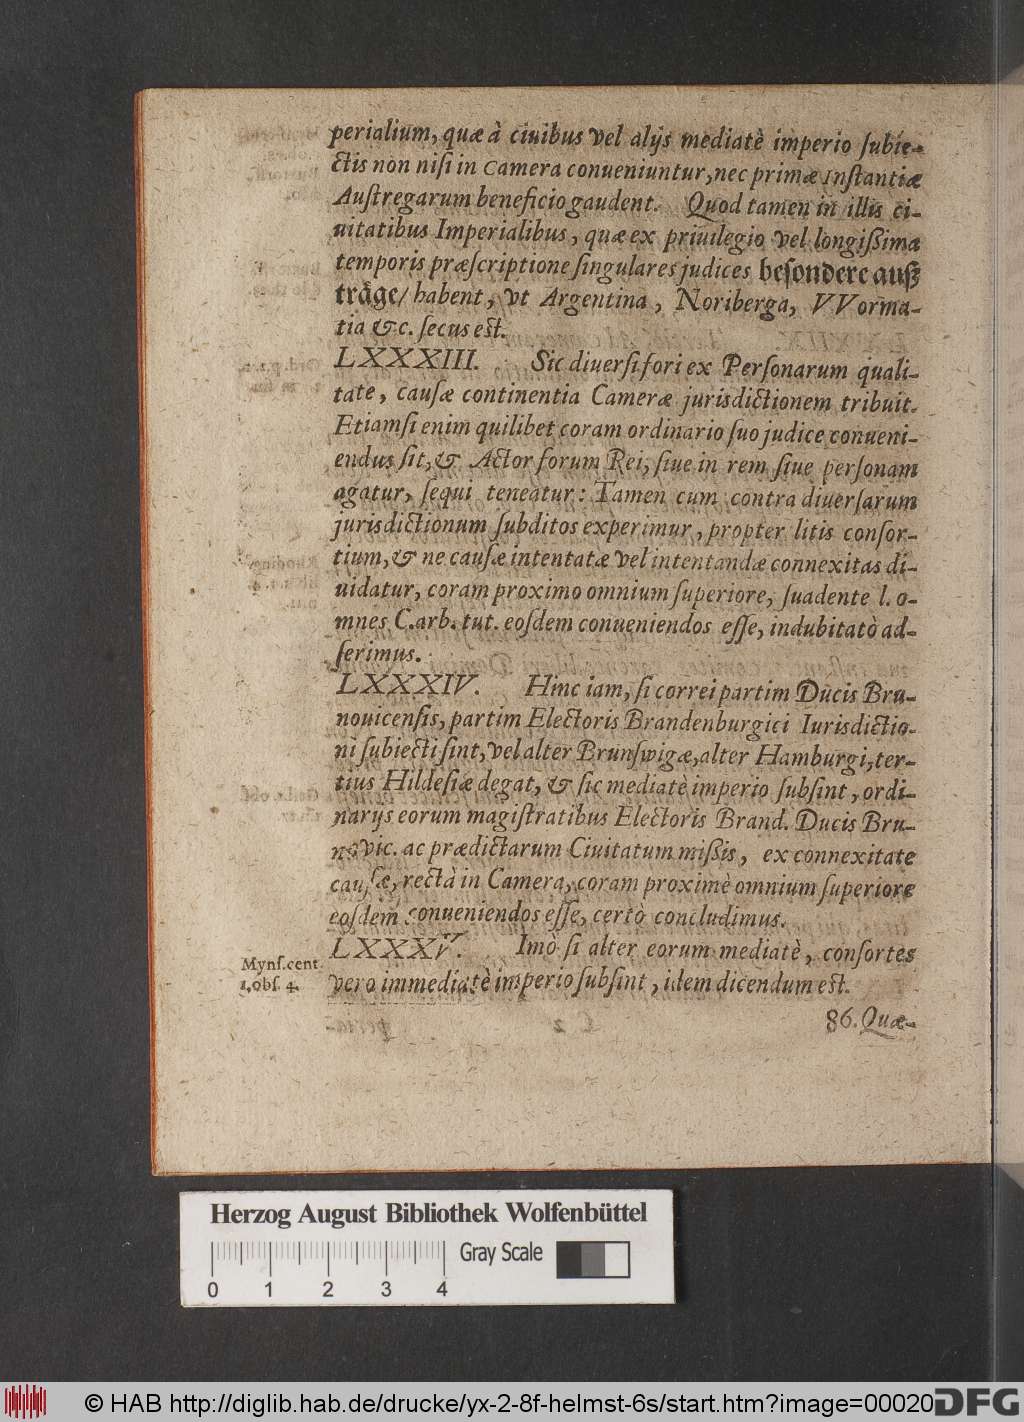 perialium, quæ à ciuibus vel alijs mediatè imperio ſubie-
ctis non niſi in Camera conueniuntur, nec primæ Inſtantiæ
Auſtregarum beneficio gaudent. Quod tamen in illis ci-
uitatibus Imperialibus, quæ ex priuilegio vel longiſsima
temporis præſcriptione ſingulares judices beſondere auß
träge/ habent, vt Argentina, Noriberga, VVorma-
tia &c. ſecus eſt.
LXXXIII. Sic diuerſi fori ex Perſonarum quali-
tate, cauſæ continentia Cameræ jurisdictionem tribuit.
Etiamſi enim quilibet coram ordinario ſuo judice conueni-
endus ſit, & Actor forum Rei, ſiue in rem ſiue perſonam
agatur, ſequi teneatur: Tamen cum contra diuerſarum
jurisdictionum ſubditos experimur, propter litis conſor-
tium, & ne cauſæ intentatæ vel intentandæ connexitas di-
uidatur, coram proximo omnium ſuperiore, ſuadente l. o-
mnes C. arb. tut. eoſdem conueniendos eſſe, indubitatò ad-
ſerimus.
LXXXIV. Hinc iam, ſi correi partim Ducis Bru-
nouicenſis, partim Electoris Brandenburgici Iurisdictio-
ni ſubiecti ſint, vel alter Brunſwigæ, alter Hamburgi, ter-
tius Hildeſiæ degat, & ſic mediatè imperio ſubſint, ordi-
narijs eorum magiſtratibus Electoris Brand. Ducis Bru-
novic. ac prædictarum Ciuitatum miſsis, ex connexitate
cauſæ, rectà in Camera, coram proximè omnium ſuperiore
eoſdem conueniendos eſſe, certò concludimus.
LXXXV. Imò ſi alter eorum mediatè, conſortes
Mynſ. cent.
1, obſ. 4.
vero immediatè imperio ſubſint, idem dicendum eſt.
86. Quæ-
Herzog August Bibliothek Wolfenbüttel
Gray Scale
0 1 2 3 4
© HAB http://diglib.hab.de/drucke/yx-2-8f-helmst-6s/start.htm?image=00020
DFG